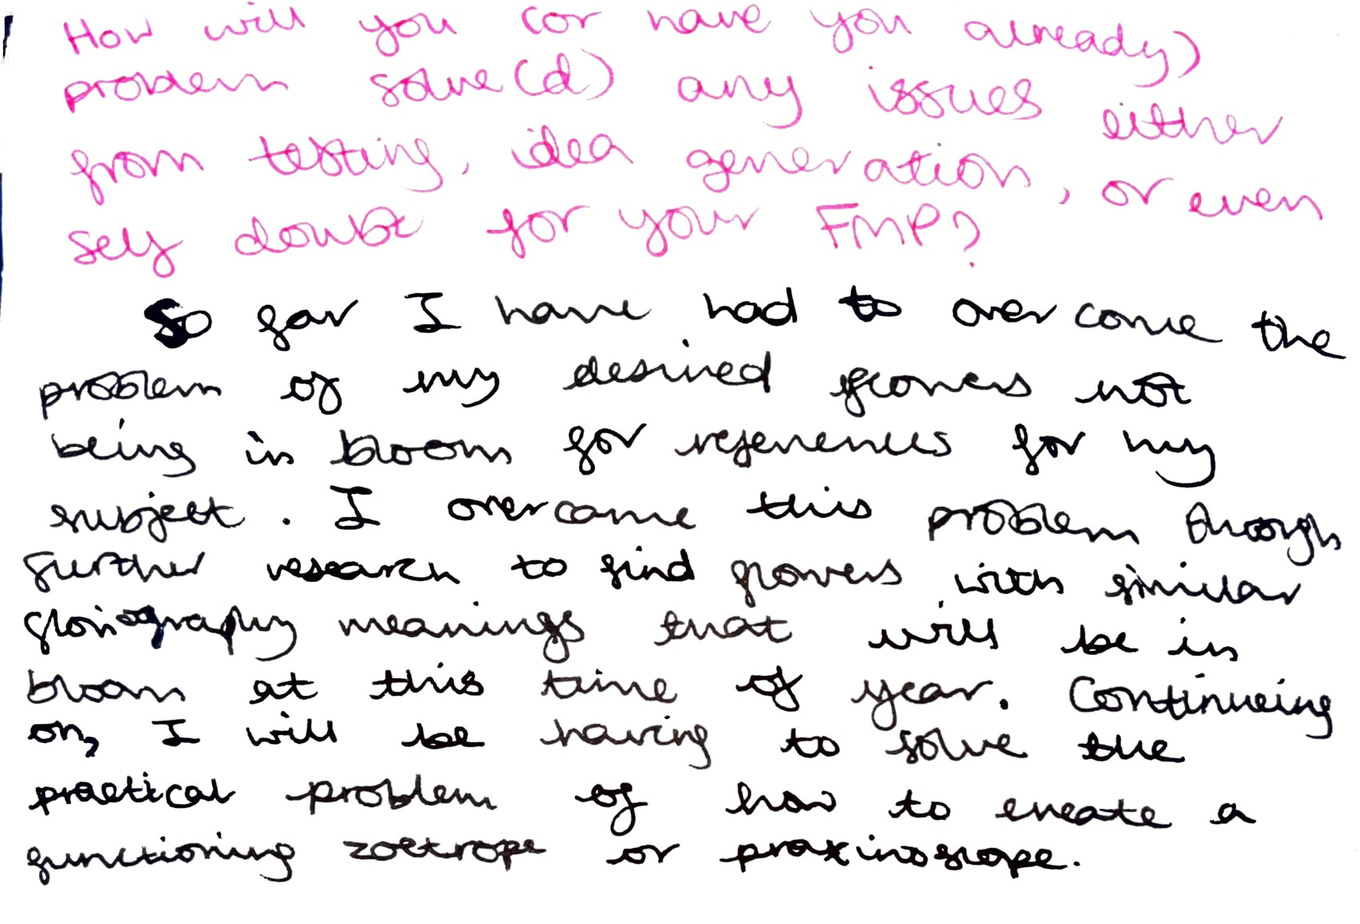 How will you (or have you already)
problem solve(d) any issues either
from testing, idea generation, or even
self doubt for your FMP?
So far I have had to overcome the
problem of my desired flowers not
being in bloom for references for my
subject. I overcame this problem through
further research to find flowers with similar
floriography meanings that will be in
bloom at this time of year. Continueing
on, I will be having to solve the
practical problem of how to create a
functioning zoetrope or praxinoscope.